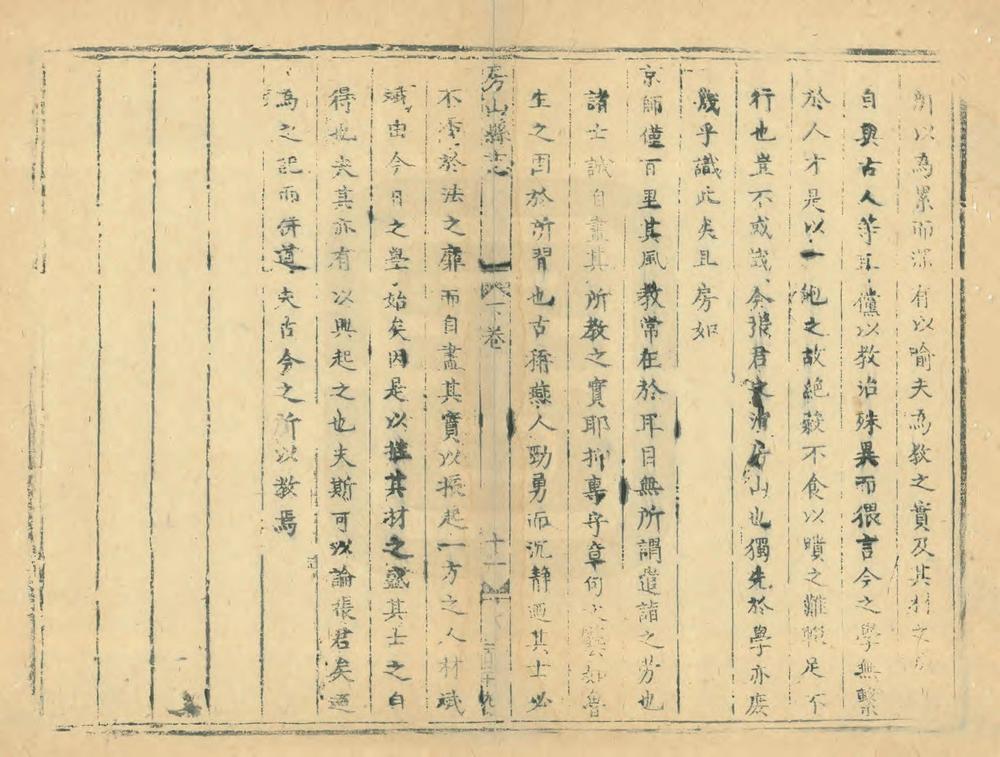 所以為累而深有以喻夫為教之實及其材之
自與古人等耳儻以教治殊異而猥言今之學無繫
於人才是以一飽之故絕穀不食以噴之難輟足不
行也豈不或㢤今張君之漪房山也獨先於學亦庶
幾乎識此矣且房如
京師僅百里其風教常在於耳目無所謂造詣之劳也
諸士誠自盡其所教之實耶抑專守章句之如魯
生之固於所習也古稱燕人勁勇而沉静過其士必
房山縣志
下卷
十一
不 於法之靡而自盡其實以振起一方之人材斌
斌由今日之學始矣因是以推其材之盛其士之自
得也夫其亦有以興起之也夫斯可以論張君矣廼
為之記而併道夫古今之所以教焉